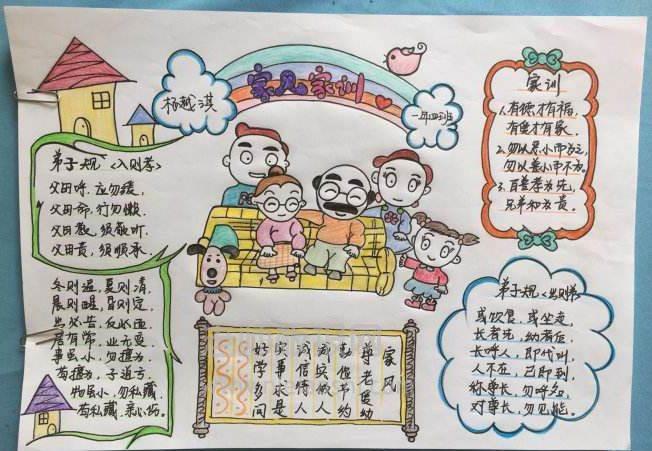 家风家训
杨越淇
一年四班
弟子规《入则孝》
父母呼，应勿缓，
父母命，行勿懒，
父母教，须敬听，
父母责，须顺承，
冬则温，夏则清，
晨则省，昏则定，
出必告，反必面，
居有常，业无变，
事虽小，勿擅为，
苟擅为，子道亏，
物虽小，勿私藏，
苟私藏，亲心伤。
家训
1.有德才有福，
有爱才有家。
2.勿以恶小而为之，
勿以善小而不为。
3.百善孝为先，
兄弟和为贵。
弟子规《出则弟》
或饮食，或坐走，
长者先，幼者后，
长呼人，即代叫，
人不在，己即到，
称尊长，勿呼名，
对尊长，勿见能。
家风
尊老爱幼
勤俭节约
诚实做人
诚信待人
实事求是
好学多问